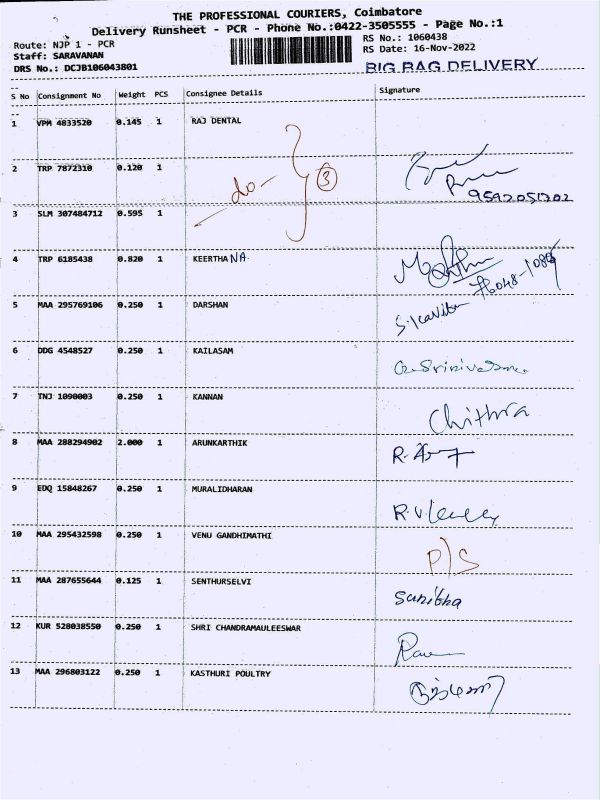 THE PROFESSIONAL COURIERS, Coimbatore
Delivery Runsheet - PCR - Phone No.:0422-3505555 - Page No.:1
Route: NJP 1 - PCR
RS No.: 1060438
Staff: SARAVANAN
RS Date: 16-Nov-2022
DRS No.: DCJB106043801
BIG BAG DELIVERY
S No Consignment No Weight PCS Consignee Details Signature
1 VPM 4833520 0.145 1 RAJ DENTAL
2 TRP 7872310 0.120 1
- do - 3
9592051202
3 SLM 307484712 0.595 1
4 TRP 6185438 0.820 1 KEERTHANA
5 MAA 295769106 0.250 1 DARSHAN S.Kavitha
6 DDG 4548527 0.250 1 KAILASAM
7 TNJ 1090003 0.250 1 KANNAN Chithra
8 MAA 288294902 2.000 1 ARUNKARTHIK
9 EDQ 15848267 0.250 1 MURALIDHARAN
10 MAA 295432598 0.250 1 VENU GANDHIMATHI P/S
11 MAA 287655644 0.125 1 SENTHURSELVI Sunitha
12 KUR 528038550 0.250 1 SHRI CHANDRAMAULEESWAR
13 MAA 296803122 0.250 1 KASTHURI POULTRY